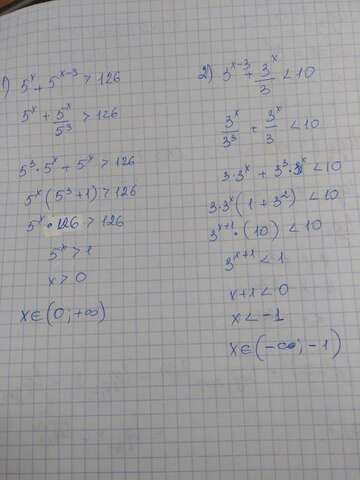 1) 5^x + 5^{x-3} > 126
5^x + 5^x/5^3 > 126
5^3 · 5^x + 5^x > 126
5^x (5^3 + 1) > 126
5^x · 126 > 126
5^x > 1
x > 0
x ∈ (0; +∞)
2) 3^{x-3} + 3^x/3 < 10
3^x/3^3 + 3^x/3 < 10
3·3^x + 3^3·3^x < 10
3·3^x (1 + 3^2) < 10
3^{x+1} · (10) < 10
3^{x+1} < 1
x+1 < 0
x < -1
x ∈ (-∞; -1)